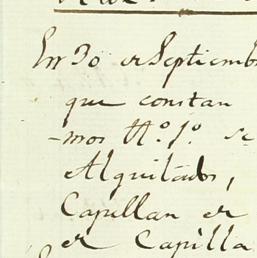 En 30 de Septiemb
que constan
mos N.º 1.º se
Alquilados,
Capellan de
de Capilla